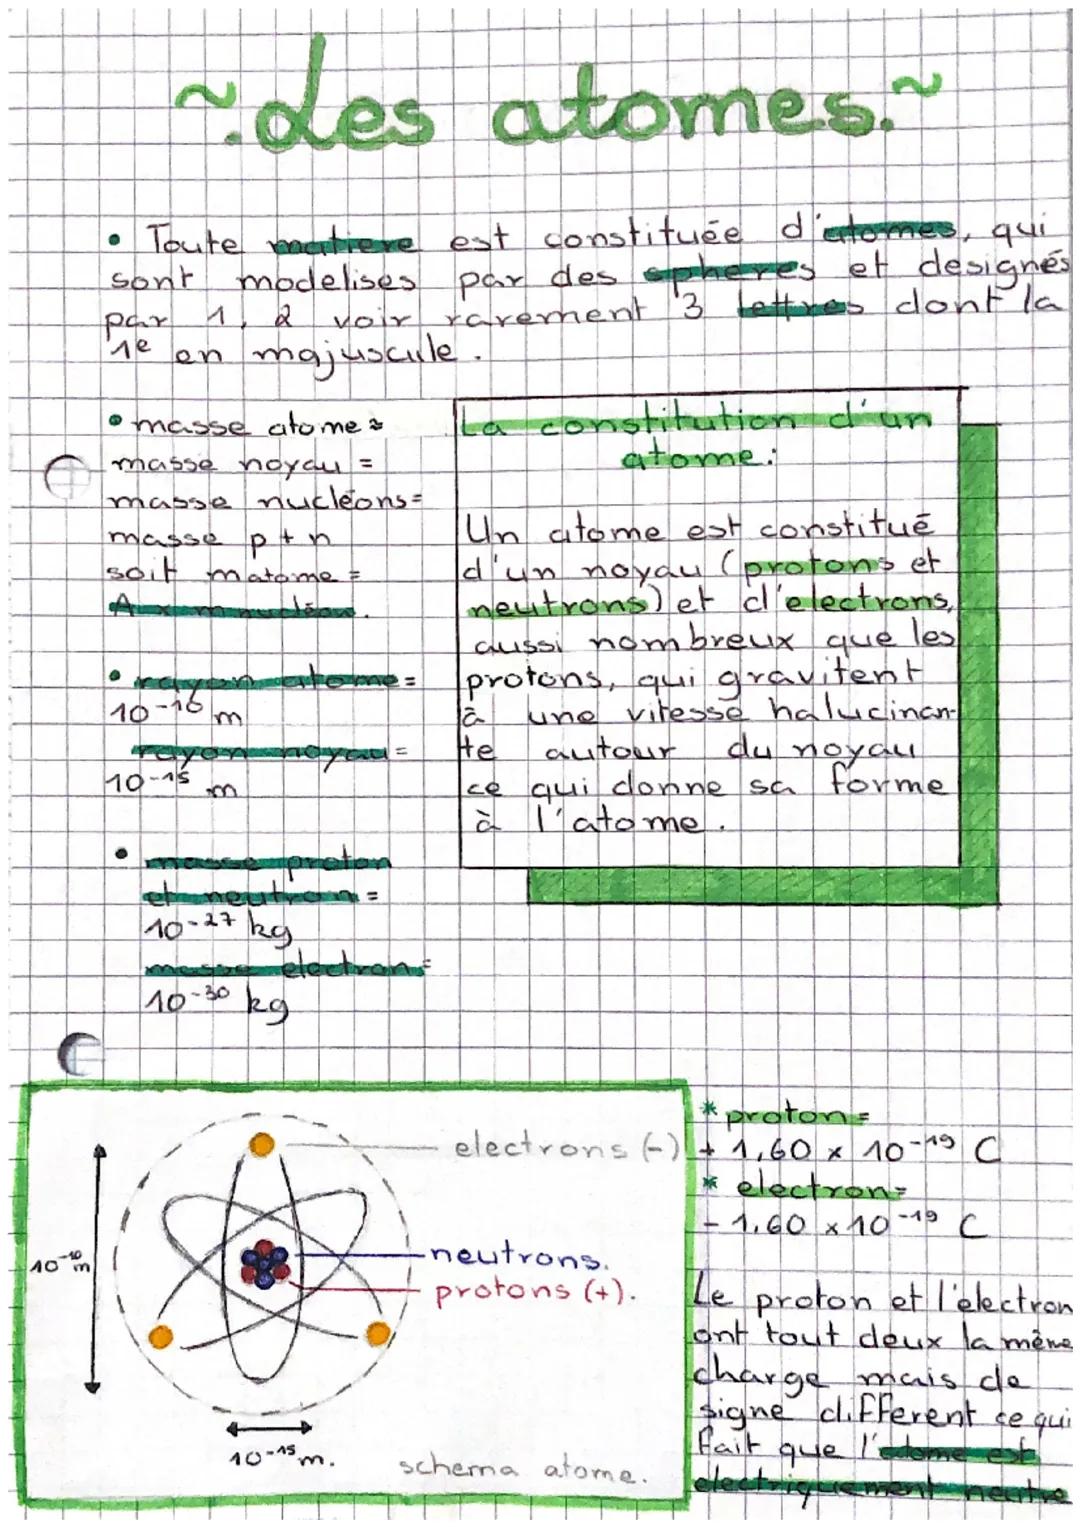 ~ Les atomes. ~
• Toute matiere est constituée d'atomes, qui
sont modelises par des spheres et designés
par 1, 2 voir rarement 3 lettres dont la
1e en majuscule.
• masse atome ≈
masse noyau =
masse nucléons =
masse p + n
soit matome =
A x m nucléon.
• rayon atome =
10-10 m
rayon noyau =
10-15 m
• masse proton
et neutron =
10-27 kg
masse electron =
10-30 kg
La constitution d'un
atome:
Un atome est constitué
d'un noyau (protons et
neutrons) et d'electrons,
aussi nombreux que les
protons, qui gravitent
à une vitesse halucinan-
te autour du noyau
ce qui donne sa forme
à l'atome.
electrons (-)
neutrons.
protons (+).
10-10 m
10-15 m.
schema atome.
* proton =
+ 1,60 x 10-19 C
* electron =
- 1.60 x 10-19 C
Le proton et l'électron
ont tout deux la même
charge mais de
signe different ce qui
fait que l'atome est
electriquement neutre